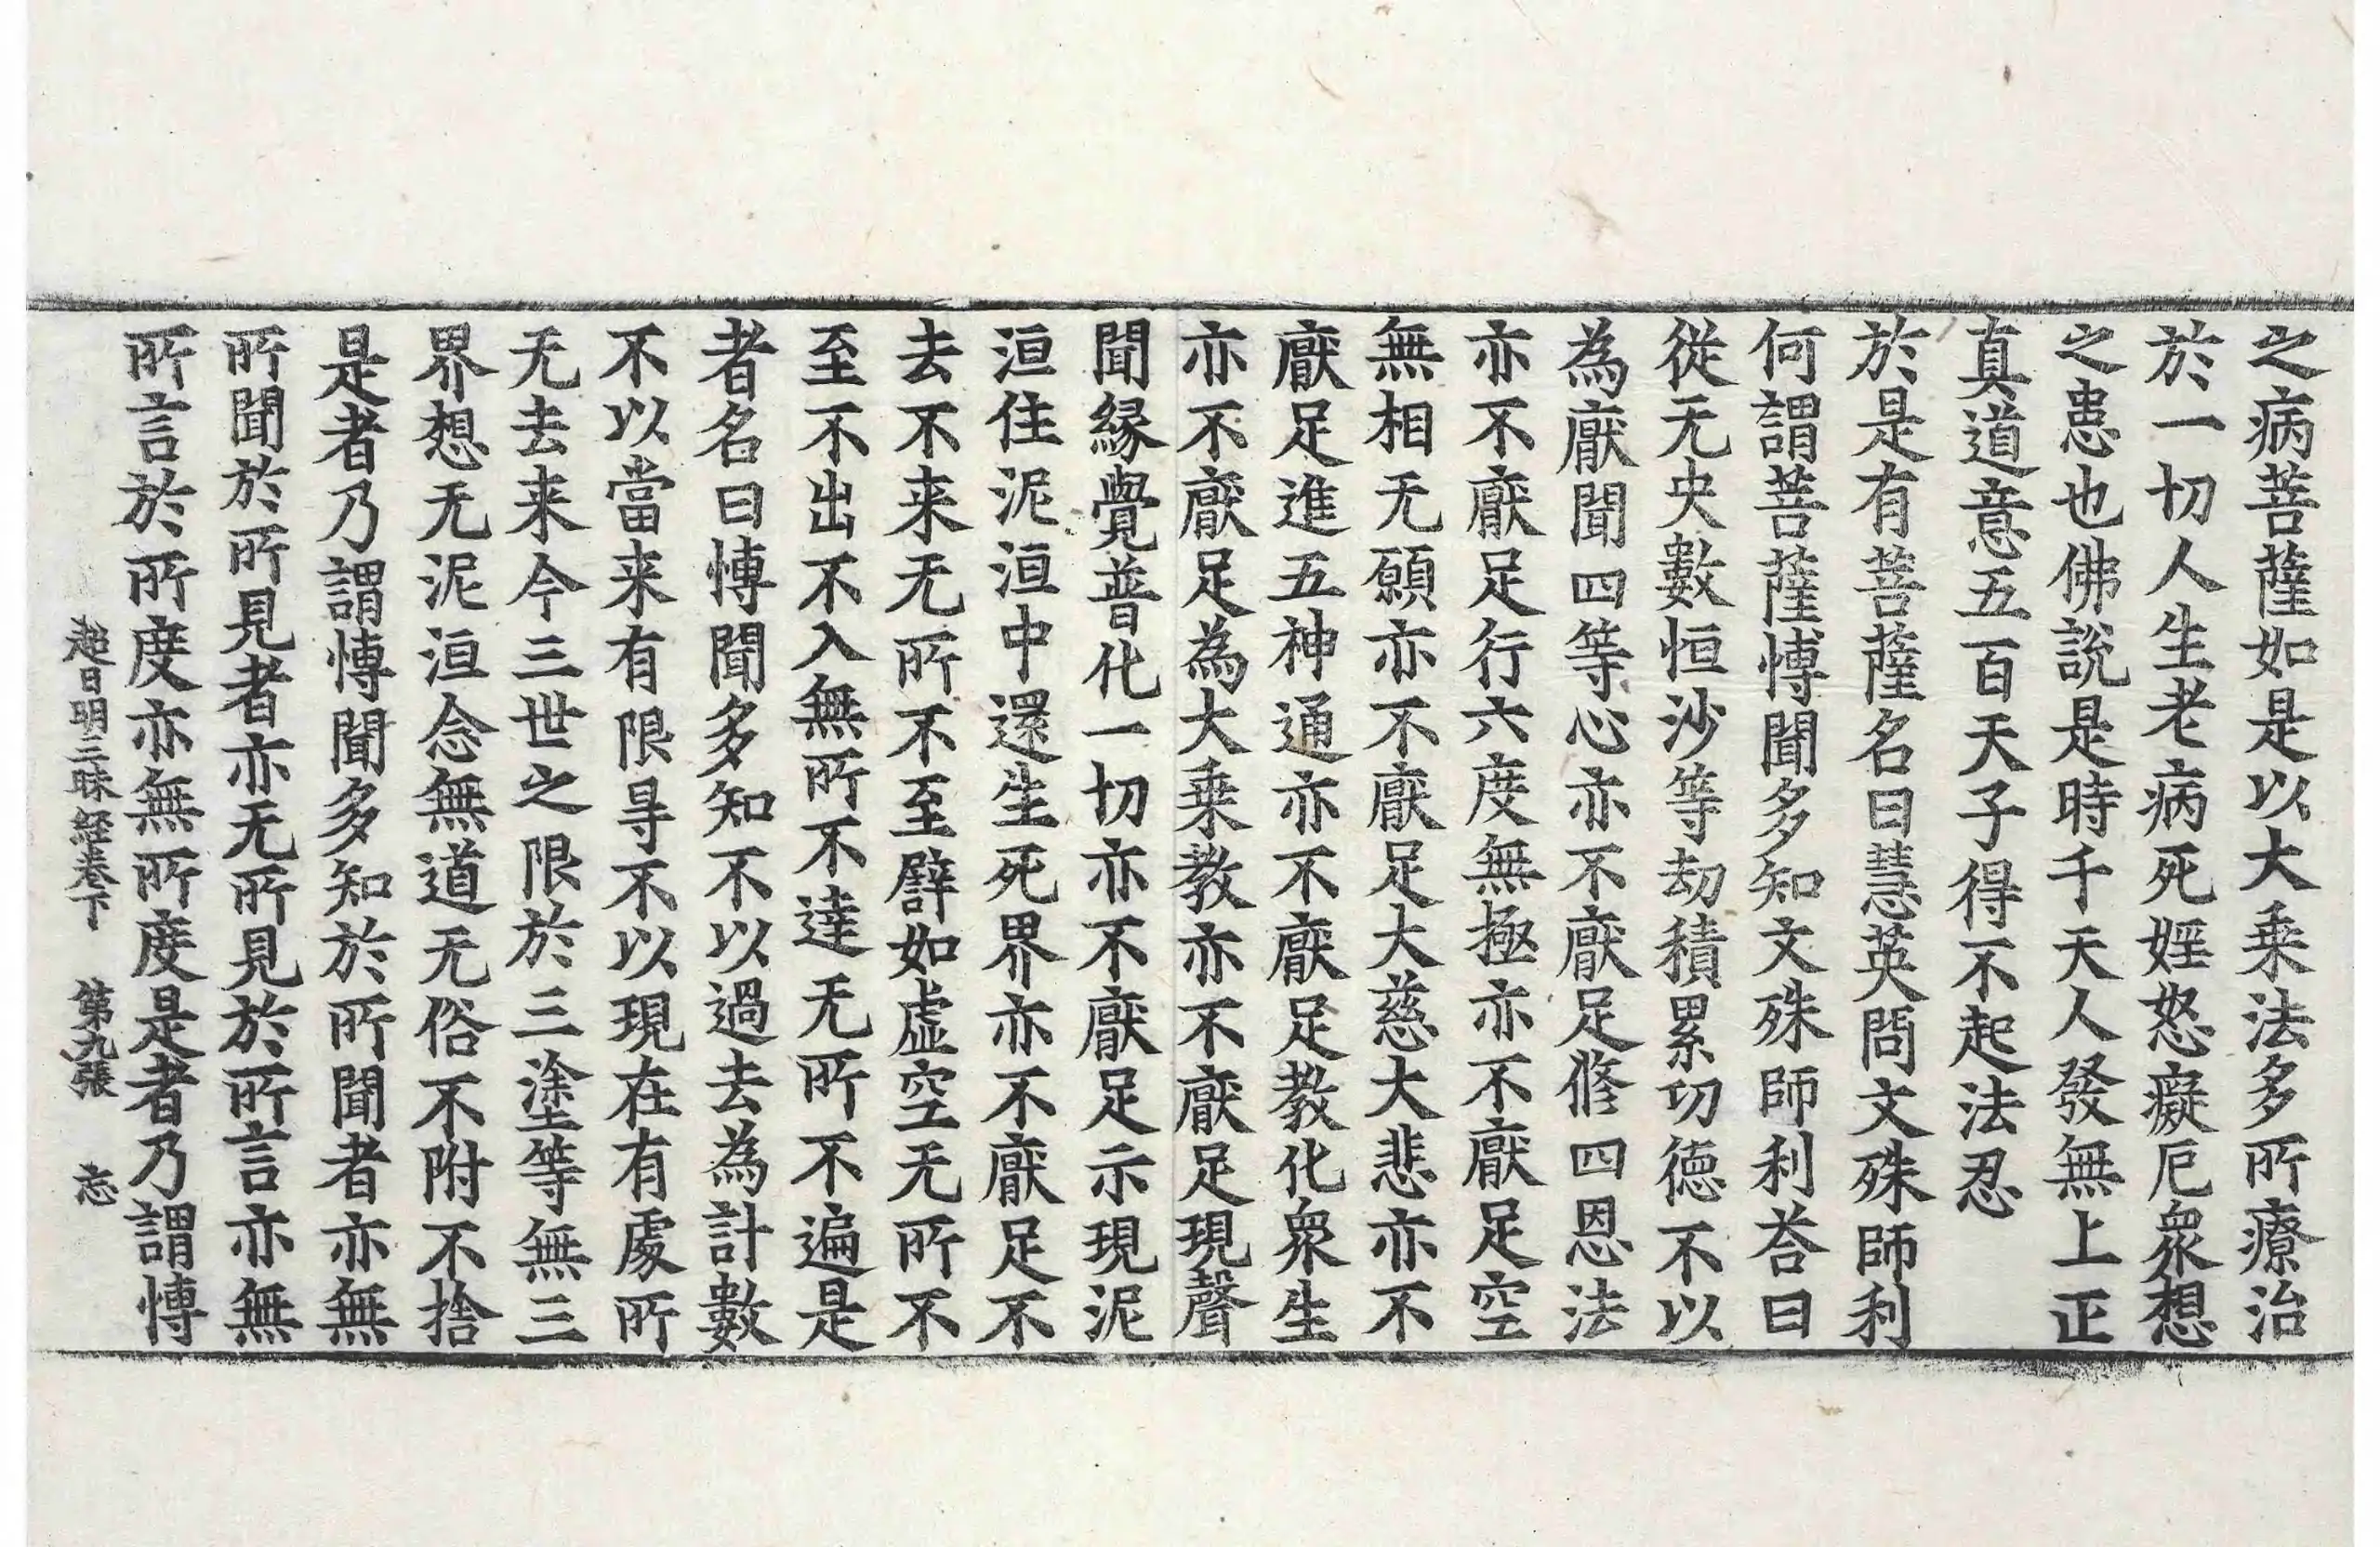 之病菩薩如是以大乗法多所療治
於一切人生老病死婬怒癡厄衆想
之患也佛說是時千天人發無上正
真道意五百天子得不起法忍
於是有菩薩名曰慧英問文殊師利
何謂菩薩愽聞多知文殊師利荅曰
從无央數恒沙等劫積累功德不以
為猒聞四等心亦不猒足脩四恩法
亦不猒足行六度無極亦不猒足空
無相无願亦不猒足大慈大悲亦不
猒足進五神通亦不猒足教化衆生
亦不猒足為大乗教亦不猒足現聲
聞緣覺普化一切亦不猒足示現泥
洹住泥洹中還生死界亦不猒足不
去不来无所不至譬如虛空无所不
至不出不入無所不達无所不遍是
者名曰愽聞多知不以過去為計數
不以當来有限㝵不以現在有處所
无去来今三世之限於三塗等無三
界想无泥洹念無道无俗不附不捨
是者乃謂愽聞多知於所聞者亦無
所聞於所見者亦无所見於所言亦無
所言於所度亦無所度是者乃謂愽
超日明三昧經卷下 第九張 忘